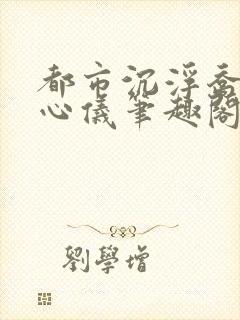 都市沉浮喬
心儀筆趣閣
劉學增